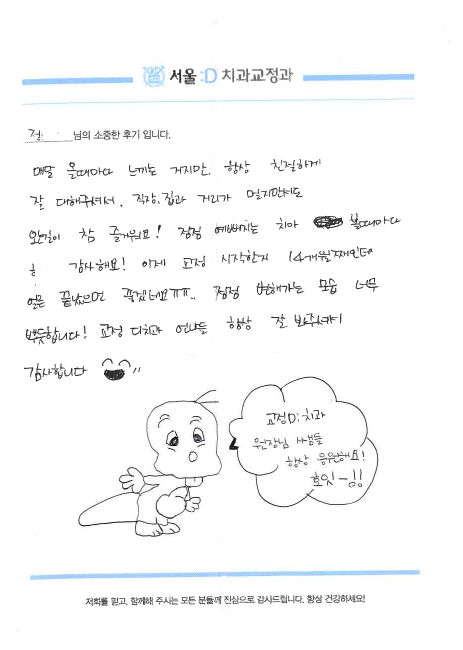 서울:D 치과교정과
정 님의 소중한 후기 입니다.
매달 올때마다 느끼는 거지만, 항상 친절하게
잘 대해주셔서, 직장,집과 거리가 멀지만서도
오는길이 참 즐거워요! 점점 예뻐지는 치아 볼때마다
감사해요! 이제 교정 시작한지 14개월째인데
얼른 끝났으면 좋겠네요ㅠㅠ.. 점점 변해가는 모습 너무
뿌듯합니다! 교정 디치과 언니들 항상 잘 봐주셔서
감사합니다
교정D:치과
원장님 쌤들
항상 응원해요!
호잇-!!
저희를 믿고, 함께해 주시는 모든 분들께 진심으로 감사드립니다. 항상 건강하세요!